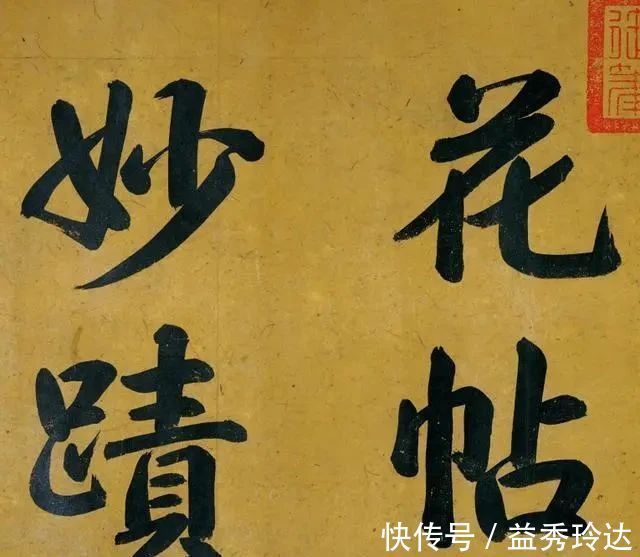 花帖
妙蹟
快传号／益秀玲达